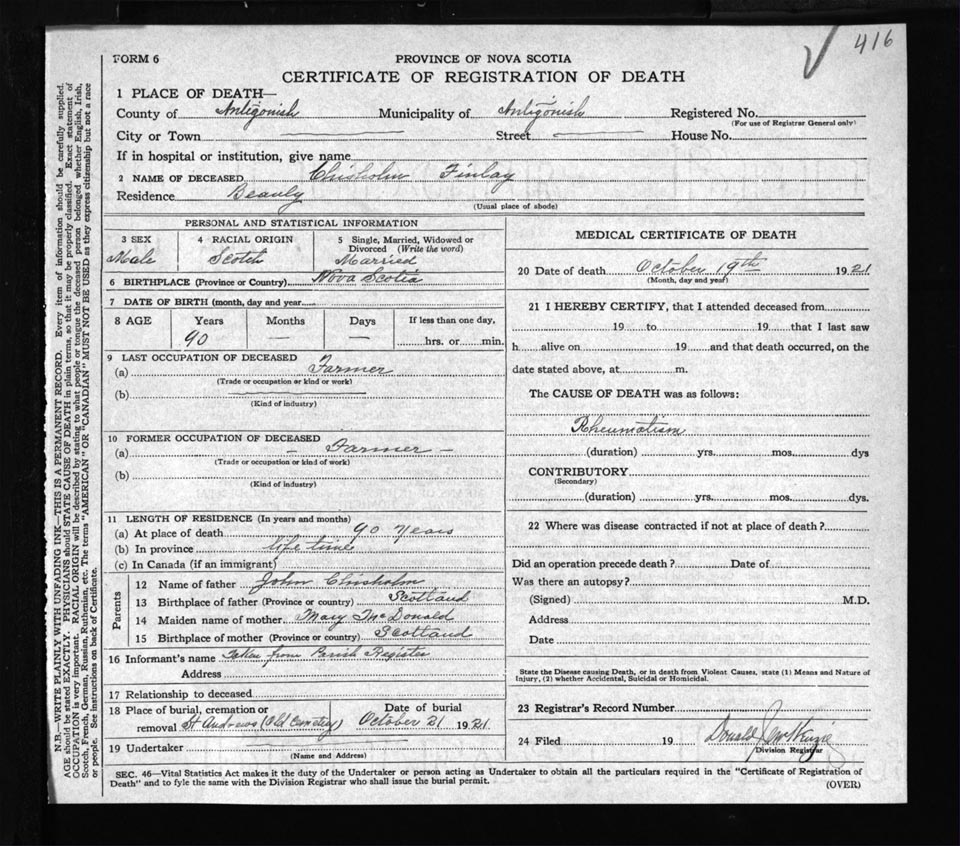 416
FORM 6
PROVINCE OF NOVA SCOTIA
CERTIFICATE OF REGISTRATION OF DEATH
1 PLACE OF DEATH—
County of Antigonish Municipality of Antigonish Registered No.
(For use of Registrar General only)
City or Town Street House No.
If in hospital or institution, give name
2 NAME OF DECEASED Chisholm Finlay
Residence Beauly
(Usual place of abode)
PERSONAL AND STATISTICAL INFORMATION
3 SEX 4 RACIAL ORIGIN 5 Single, Married, Widowed or
Divorced (Write the word)
Male Scotch Married
6 BIRTHPLACE (Province or Country) Nova Scotia
7 DATE OF BIRTH (month, day and year
8 AGE Years Months Days If less than one day,
90 — — hrs. or min.
9 LAST OCCUPATION OF DECEASED
(a) Farmer
(Trade or occupation or kind or work)
(b)
(Kind of industry)
10 FORMER OCCUPATION OF DECEASED
(a) – Farmer –
(Trade or occupation or kind of work)
(b)
(Kind of industry)
11 LENGTH OF RESIDENCE (In years and months)
(a) At place of death 90 Years
(b) In province life time
(c) In Canada (if an immigrant)
Parents
12 Name of father John Chisholm
13 Birthplace of father (Province or country) Scotland
14 Maiden name of mother Mary McDonald
15 Birthplace of mother (Province or country) Scotland
16 Informant's name Taken from Parish Register
Address
17 Relationship to deceased
18 Place of burial, cremation or Date of burial
removal St Andrews (Old Cemetery) October 21 1921
19 Undertaker
(Name and Address)
MEDICAL CERTIFICATE OF DEATH
20 Date of death October 19th 1921
(Month, day and year)
21 I HEREBY CERTIFY, that I attended deceased from
19 to 19 that I last saw
h alive on 19 and that death occurred, on the
date stated above, at m.
The CAUSE OF DEATH was as follows:
Rheumatism
(duration) yrs. mos. dys
CONTRIBUTORY
(Secondary)
(duration) yrs. mos. dys.
22 Where was disease contracted if not at place of death?
Did an operation precede death? Date of
Was there an autopsy?
(Signed) M.D.
Address
Date
State the Disease causing Death, or in death from Violent Causes, state (1) Means and Nature of
Injury, (2) whether Accidental, Suicidal or Homicidal.
23 Registrar's Record Number
24 Filed 19 Donald J McKenzie
Division Registrar
SEC. 46—Vital Statistics Act makes it the duty of the Undertaker or person acting as Undertaker to obtain all the particulars required in the "Certificate of Registration of
Death" and to fyle the same with the Division Registrar who shall issue the burial permit.
(OVER)
N.B.—WRITE PLAINLY WITH UNFADING INK—THIS IS A PERMANENT RECORD. Every item of information should be carefully supplied.
AGE should be stated EXACTLY. PHYSICIANS should STATE CAUSE OF DEATH in plain terms, so that it may be properly classified. Exact statement of
OCCUPATION is very important. RACIAL ORIGIN will be described by stating to what people or tongue the deceased person belonged whether English, Irish,
Scotch, French, German, Russian, Ruthenian, etc. The terms "AMERICAN" OR "CANADIAN" MUST NOT BE USED as they express citizenship but not a race
or people. See instructions on back of Certificate.